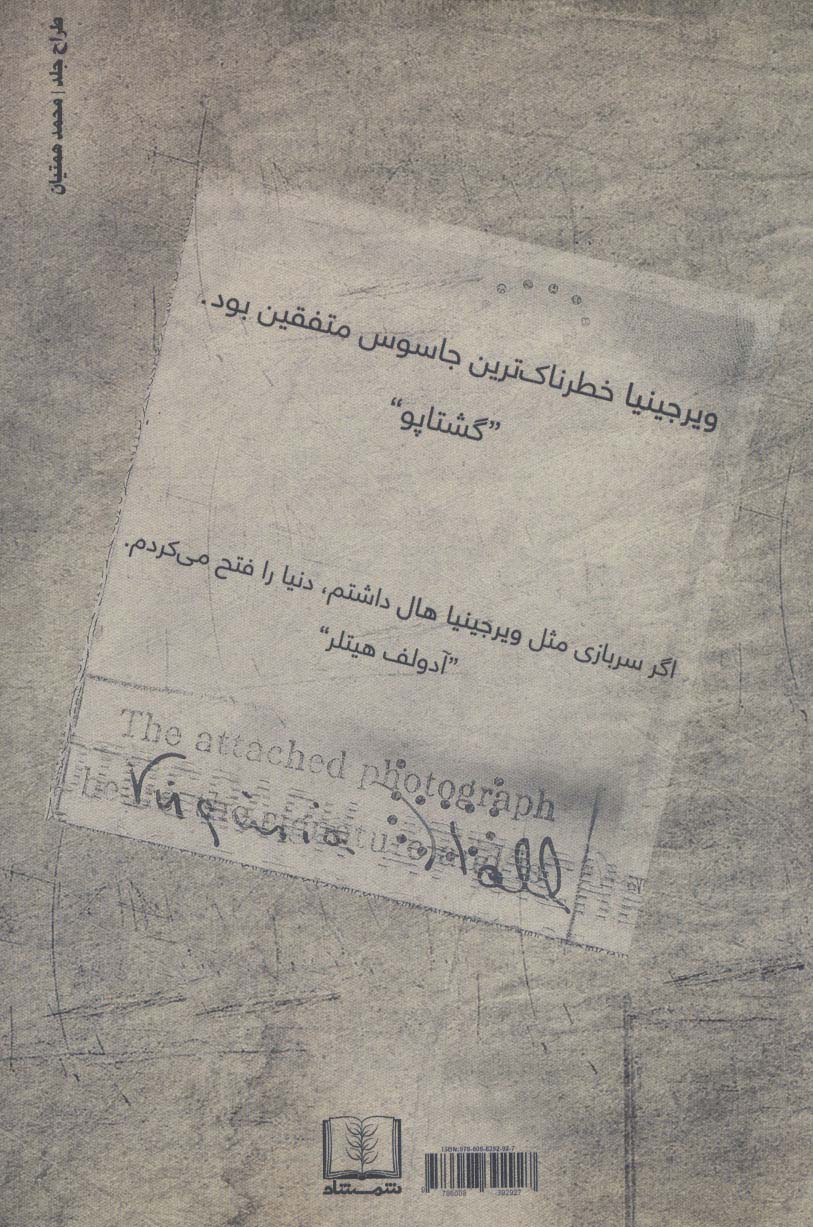 طراح جلد | محمد همتیان
ویرجینیا خطرناک‌ترین جاسوس متفقین بود.
”گشتاپو“
اگر سربازی مثل ویرجینیا هال داشتم، دنیا را فتح می‌کردم.
”آدولف هیتلر“
The attached photograph
Virginia Hall
be signature
شمشاد
ISBN: 978-600-8392-92-7
9 786008 392927